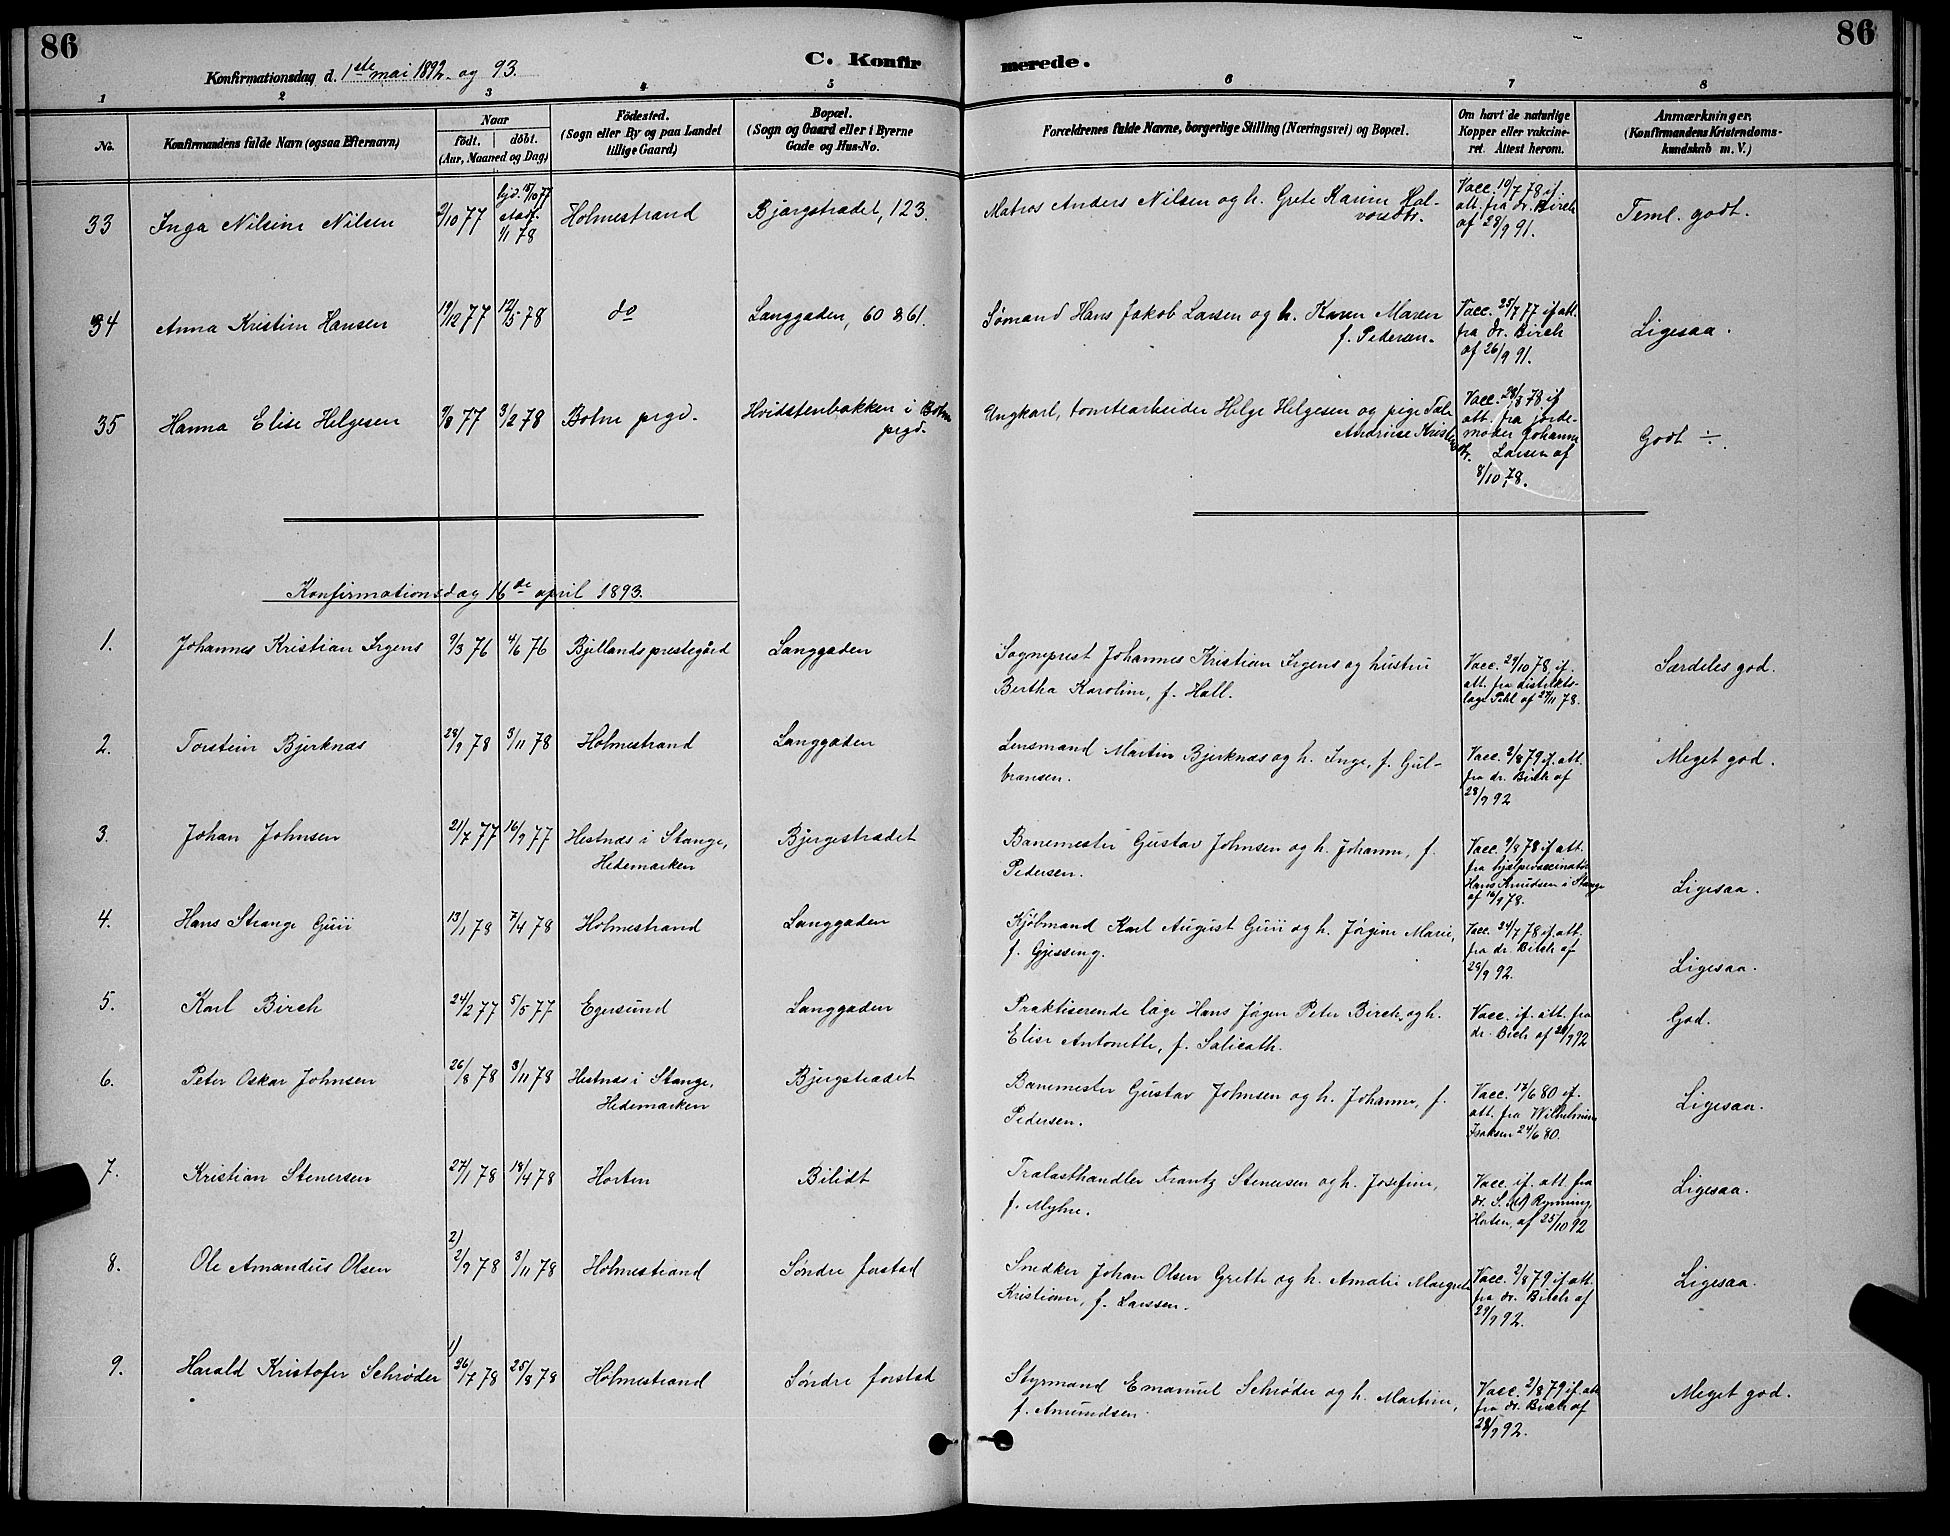 86
86
Konfirmationsdag d. 1ste mai 1892 og 93.
C. Konfirmerede.
1 2 3 4 5 6 7 8
No.
Konfirmandens fulde Navn (ogsaa Efternavn)
Naar
født. døbt.
(Aar, Maaned og Dag)
Födested.
(Sogn eller By og paa Landet
tillige Gaard)
Bopæl.
(Sogn og Gaard eller i Byerne
Gade og Hus-No.
Forældrenes fulde Navne, borgerlige Stilling (Næringsvei) og Bopæl.
Om havt de naturlige
Kopper eller vakcine-
ret. Attest herom.
Anmærkninger.
(Konfirmandens Kristendoms-
kundskab m. V.)
33 Inga Nilsine Nilsen 2/10 77 hjd. 18/10 77
stadf.
1/1 78
Holmestrand Bjærgstrædet, 123.
Matros Anders Nilsen og h. Grete Karine Hal-
vorsdtr.
Vacc. 19/7 78 if.
att. fra dr. Birch
af 28/9 91.
Teml. godt.
34 Anna Kristine Hansen 19/12 77 12/5 78 do Langgaden, 60 & 61.
Sømand Hans Jakob Larsen og h. Karen Maren
f. Pedersen.
Vacc. 25/7 77 if att.
fra dr. Birch
af 26/9 91.
Ligesaa.
35 Hanna Elise Helgesen 9/8 77 3/2 78 Botne prgd. Hvidstenbakken i Botne
prgd.
Ungkarl, tomtearbeider Helge Helgesen og pige Tale
Andrine Kristens
dtr.
Vacc. 28/8 78 if
att. fra jorde-
moder Johanne
Larsen af
8/10 78.
Godt ÷.
Konfirmationsdag 16de april 1893.
1. Johannes Kristian Irgens 9/3 76 4/6 76 Bjellands prestegård Langgaden
Sogneprest Johannes Kristian Irgens og hustru
Bertha Karoline, f. Hall.
Vacc. 29/10 78, if.
att. fra distrikts-
læge Pihl af 27/11 78.
Særdeles god.
2. Torstein Bjerknæs 28/9 78 3/11 78 Holmestrand Langgaden
Lensmand Martin Bjerknæs og h. Inge, f. Gul-
bransen.
Vacc. 2/8 79 if. att.
fra dr. Birch af
28/9 92
Meget god.
3. Johan Johnsen 21/7 77 16/9 77 Hestnæs i Stange,
Hedemarken
Bjergestrædet
Banemester Gustav Johnsen og h. Johanne, f.
Pedersen.
Vacc. 9/8 78 if att.
fra hjælpevaccinatør
Hans Knudsen i Stange
af 16/9 78.
Ligesaa.
4. Hans Strange Guii 13/1 78 7/4 78 Holmestrand Langgaden
Kjøbmand Karl August Guii og h. Jørgine Marie,
f. Gjessing.
Vacc. 24/7 78 if. att.
fra dr. Birch af
29/9 92.
Ligesaa.
5. Karl Birch 24/2 77 5/5 77 Egersund Langgaden
Praktiserende læge Hans Jørgen Peter Birch og h.
Elise Antonette, f. Salicath.
Vacc. if. att. fra
dr. Birch af 28/9 92
God.
6. Peter Oskar Johnsen 26/8 78 3/11 78 Hestnæs i Stange,
Hedemarken
Bjergstrædet
Banemester Gustav Johnsen og h. Johanne, f.
Pedersen.
Vacc. 17/6 80 if.
att. fra Wilhelmine
Isaksen 24/6 80.
Ligesaa.
7. Kristian Stenersen 27/1 78 18/4 78 Horten Bilidt
Trælasthandler Frantz Stenersen og h. Josefine,
f. Myhre.
Vacc. if. att. fra
dr. S. Rynning,
Horten, af 25/10 92
Ligesaa.
2)
8. Ole Amandus Olsen 2/9 78 3/11 78 Holmestrand Søndre forstad
Snedker Johan Olsen Grette og h. Amalie Margrete
Kristiane, f. Larssen.
Vacc. 2/8 79 if att.
fra dr. Birch af
29/9 92.
Ligesaa.
1)
9. Harald Kristofer Schrøder 26/7 78 25/8 78 Holmestrand Søndre forstad
Styrmand Emanuel Schrøder og h. Martine,
f. Amundsen.
Vacc. 2/8 79 if. att
fra dr. Birch af
28/9 92.
Meget god.